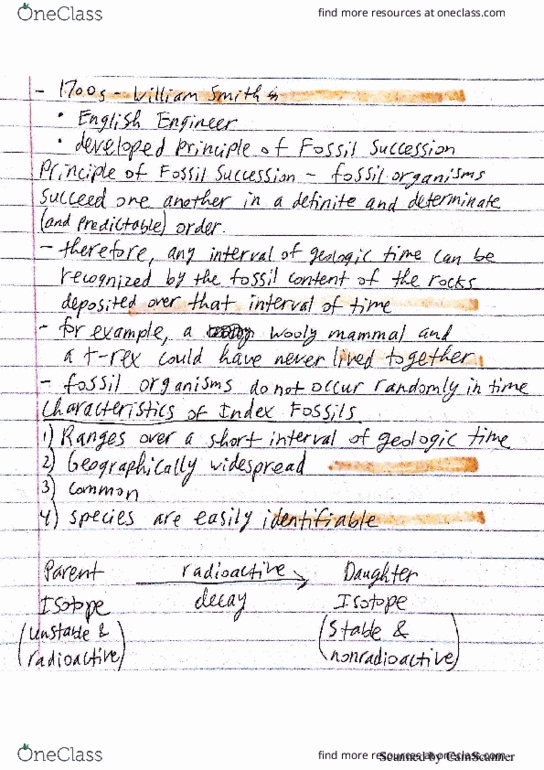 OneClass find more resources at oneclass.com
- 1700s - William Smith
• English Engineer
• developed principle of Fossil Succession
Principle of Fossil Succession - fossil organisms
succeed one another in a definite and determinate
(and predictable) order.
- therefore, any interval of geologic time can be
recognized by the fossil content of the rocks
deposited over that interval of time
- for example, a wooly mammal and
a t-rex could have never lived together
- fossil organisms do not occur randomly in time
Characteristics of Index Fossils
1) Ranges over a short interval of geologic time
2) Geographically widespread
3) common
4) species are easily identifiable
Parent radioactive Daughter
Isotope decay Isotope
(unstable & (stable &
radioactive) nonradioactive)
OneClass find more resources at oneclass.com
Scanned by CamScanner